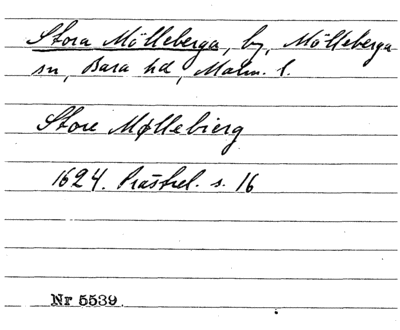 Stora Mölleberga, by, Mölleberga
sn, Bara hd, Malm. l.
Store Møllebierg
1624. Prästrel. s. 16
Nr 5539